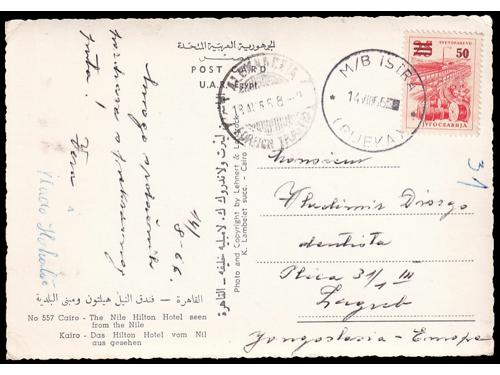 الجمهورية العربية المتحدة
POST CARD
U.A.R. Egypt
Mnogo
pozdrava s
puta!
Vera
i
14/
8-66
القاهرة - فندق النيل هيلتون ومبنى البلدية
No 557 Cairo - The Nile Hilton Hotel seen
from the Nile
Kairo - Das Hilton Hotel vom Nil
aus gesehen
Photo and Copyright by Lehnert & Landrock
K. Lambelet succ. - Cairo
ALEXANDRIA
FOREIGN TRAFFIC
M/B ISTRA
14 VIII 66
(RIJEKA)
50
JUGOSLAVIJA
31
Monsieur
Vladimir
dentista
Plica 31/1 III
Zagreb
Jougoslavia - Europe